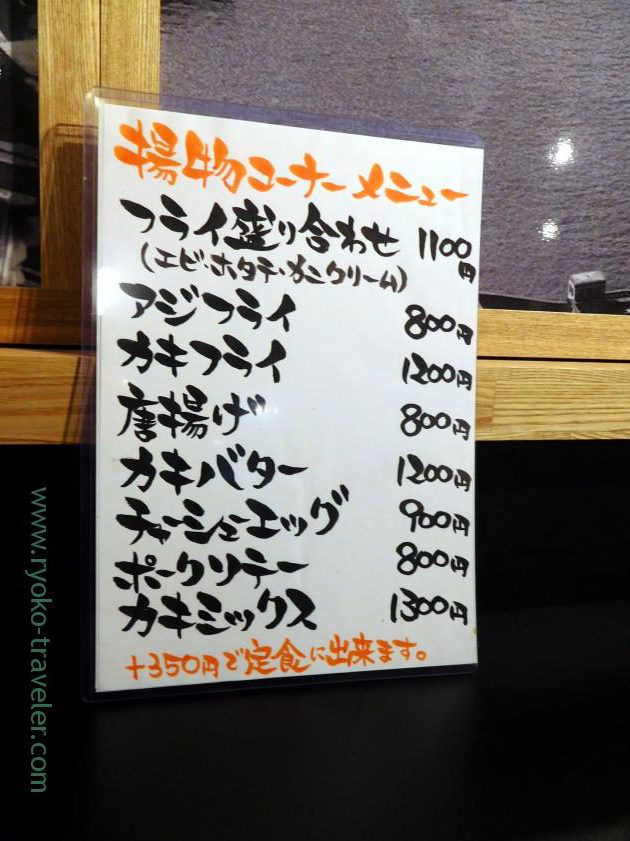 揚物コーナーメニュー
フライ盛り合わせ 1100円
(エビ・ホタテ・カニクリーム)
アジフライ 800円
カキフライ 1200円
唐揚げ 800円
カキバター 1200円
チャーシューエッグ 900円
ポークソテー 800円
カキミックス 1300円
+350円で定食に出来ます。
www.ryoko-traveler.com